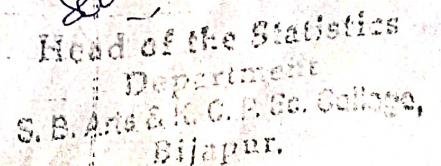 Head of the Statistics
Department
S. B. Arts & K. C. P. Sc. College,
Bijapur.